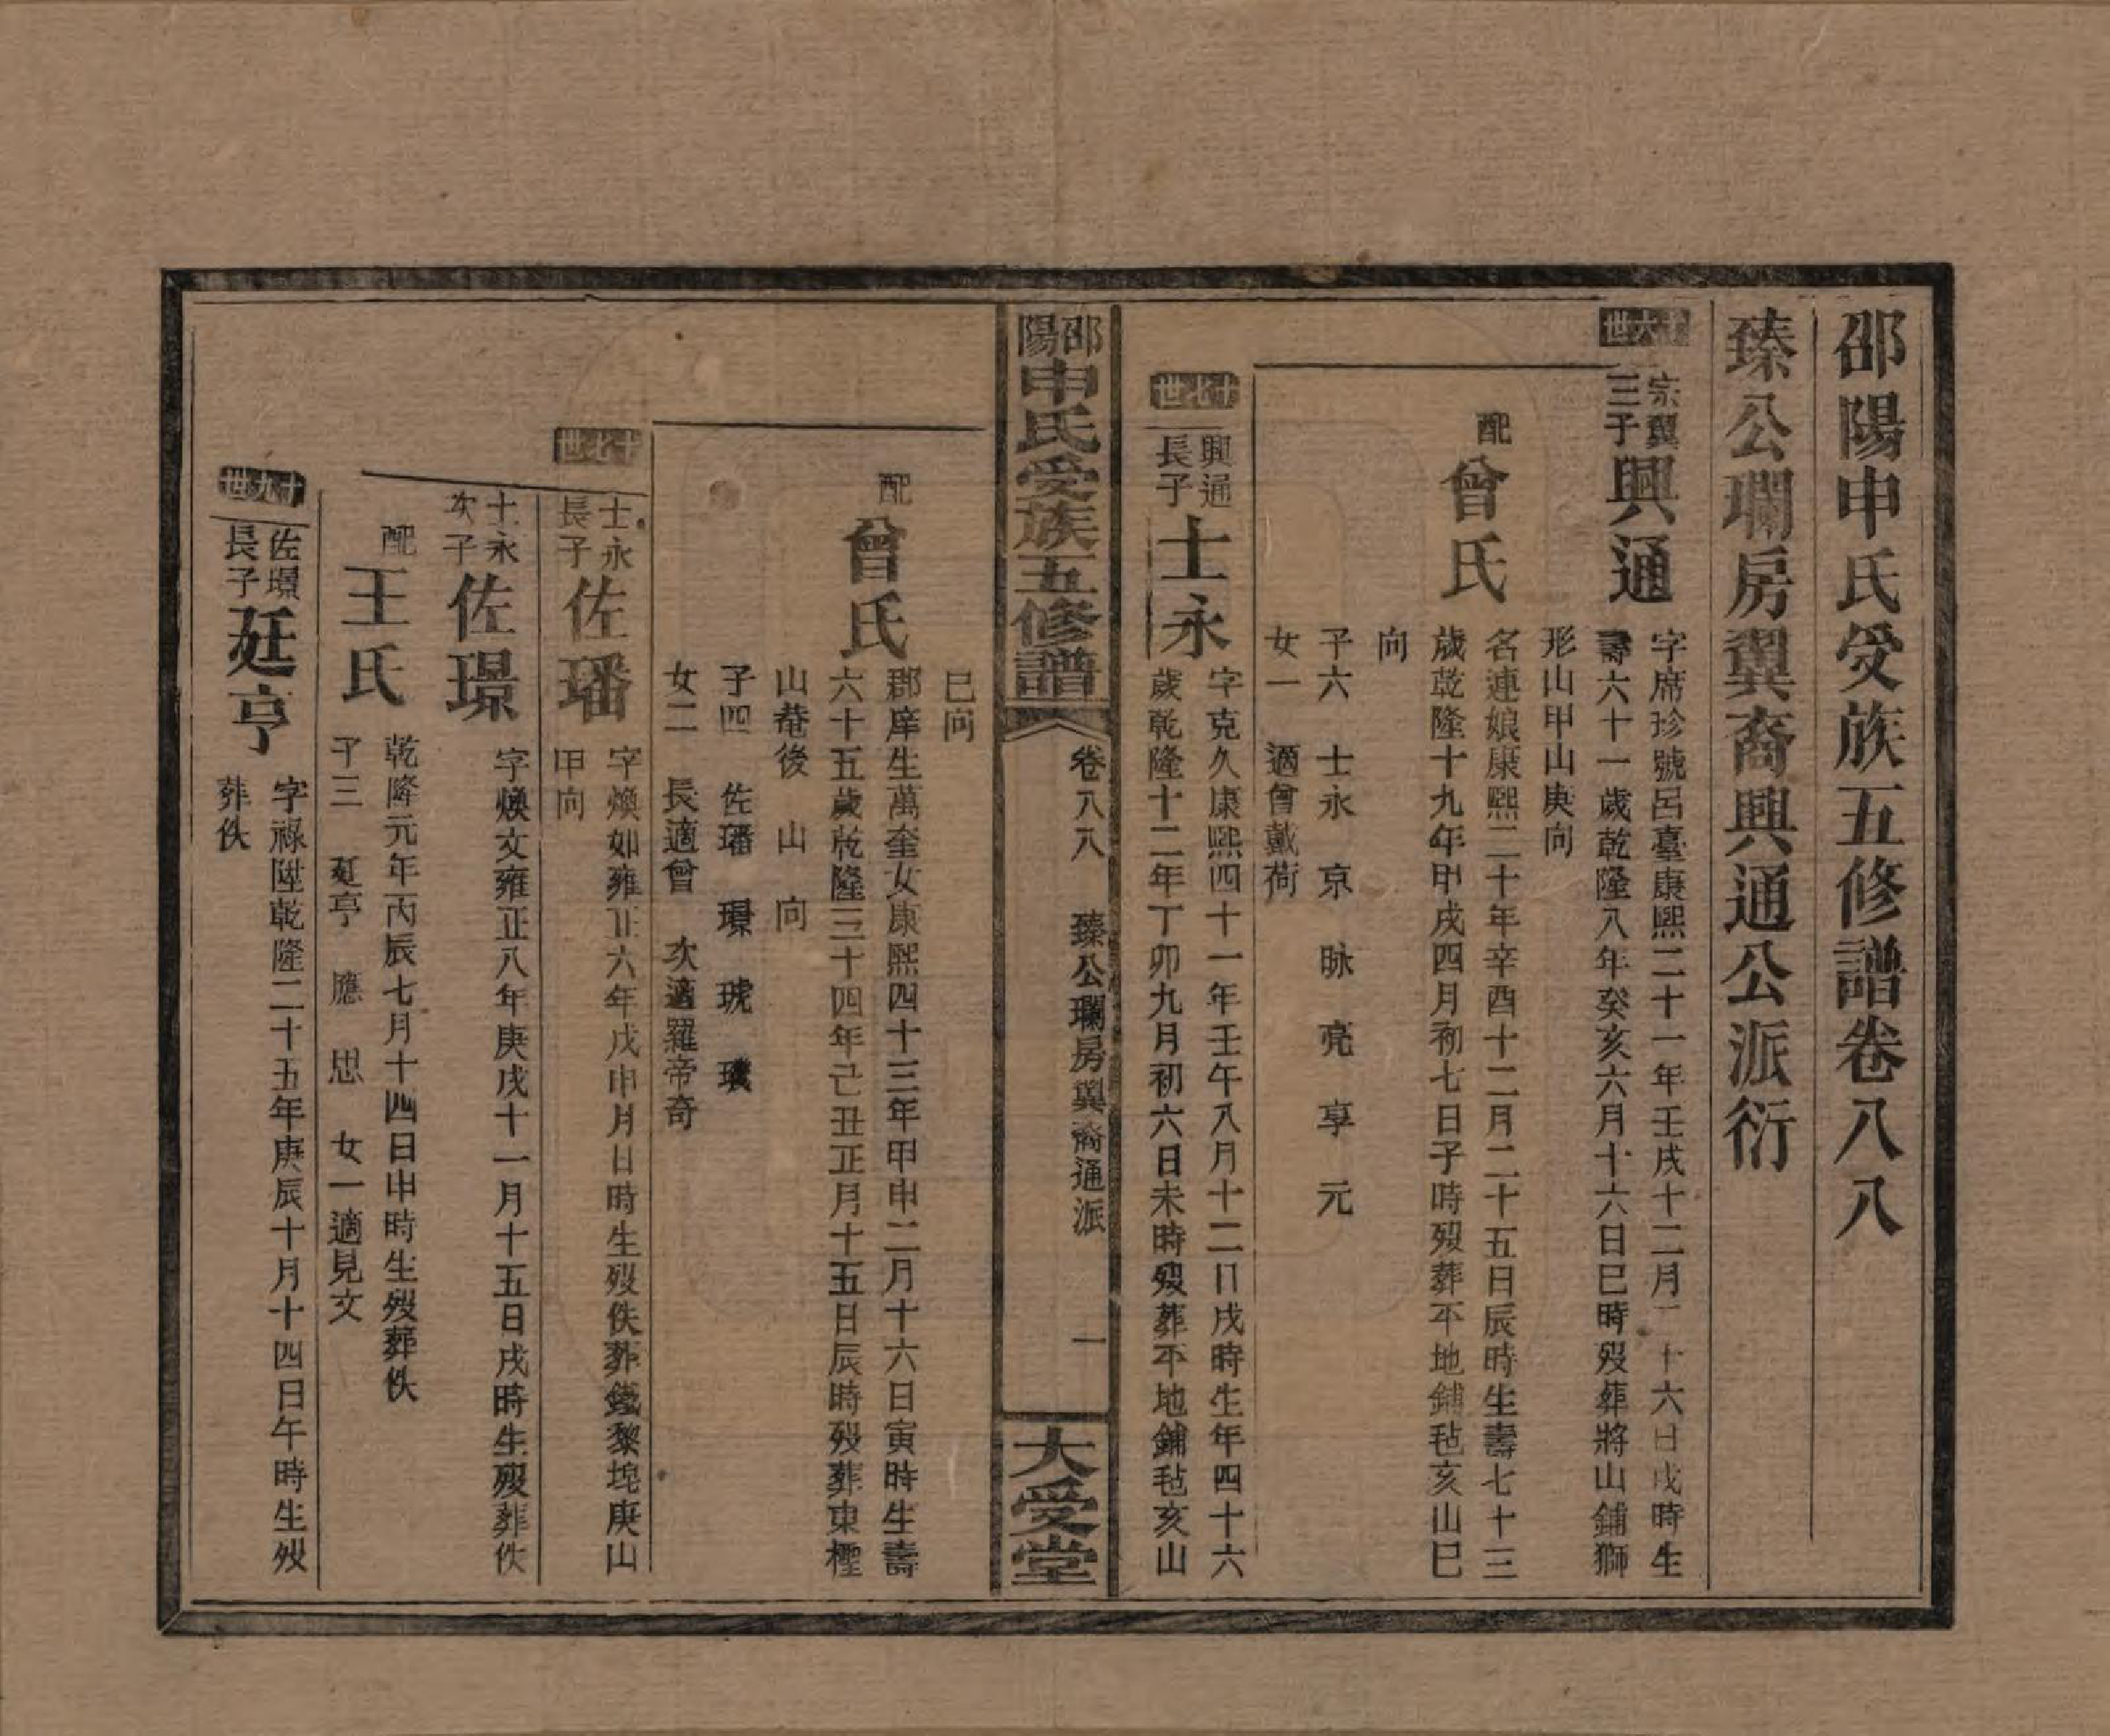 邵陽申氏受族五修譜卷八八
臻公瓓房翼裔興通公派衍
十六世
宗翼三子
興通
字席珍號呂臺康熙二十一年壬戌十二月二十六日戌時生
壽六十一歲乾隆八年癸亥六月十六日巳時歿葬將山鋪獅
形山甲山庚向
配
曾氏
名連娘康熙二十年辛酉十二月二十五日辰時生壽七十三
歲乾隆十九年甲戌四月初七日子時歿葬不地鋪毡亥山巳
向
子六 士永 京 眿 亮 享 元
女一 適曾戴荷
十七世
興通長子
士永
字克久康熙四十一年壬午八月十二日戌時生年四十六
歲乾隆十二年丁卯九月初六日未時歿葬不地鋪毡亥山
邵陽申氏受族五修譜
卷八八 臻公瓓房翼裔通派 一
大受堂
巳向
配
曾氏
郡庠生萬奎女康熙四十三年甲申二月十六日寅時生壽
六十五歲乾隆三十四年己丑正月十五日辰時歿葬東櫁
山菴後 山 向
子四 佐璠 璟 琥 璣
女二 長適曾 次適羅帝奇
十八世
士永長子
佐璠
字煥如雍正六年戊申月日時生歿佚葬鐵黎埦庚山
甲向
士永次子
佐璟
字煥文雍正八年庚戌十一月十五日戌時生歿葬佚
配
王氏
乾隆元年丙辰七月十四日申時生歿葬佚
子三 廷亭 應 思 女一適見文
十九世
佐璟長子
廷亭
字祿陞乾隆二十五年庚辰十月十四日午時生歿
葬佚